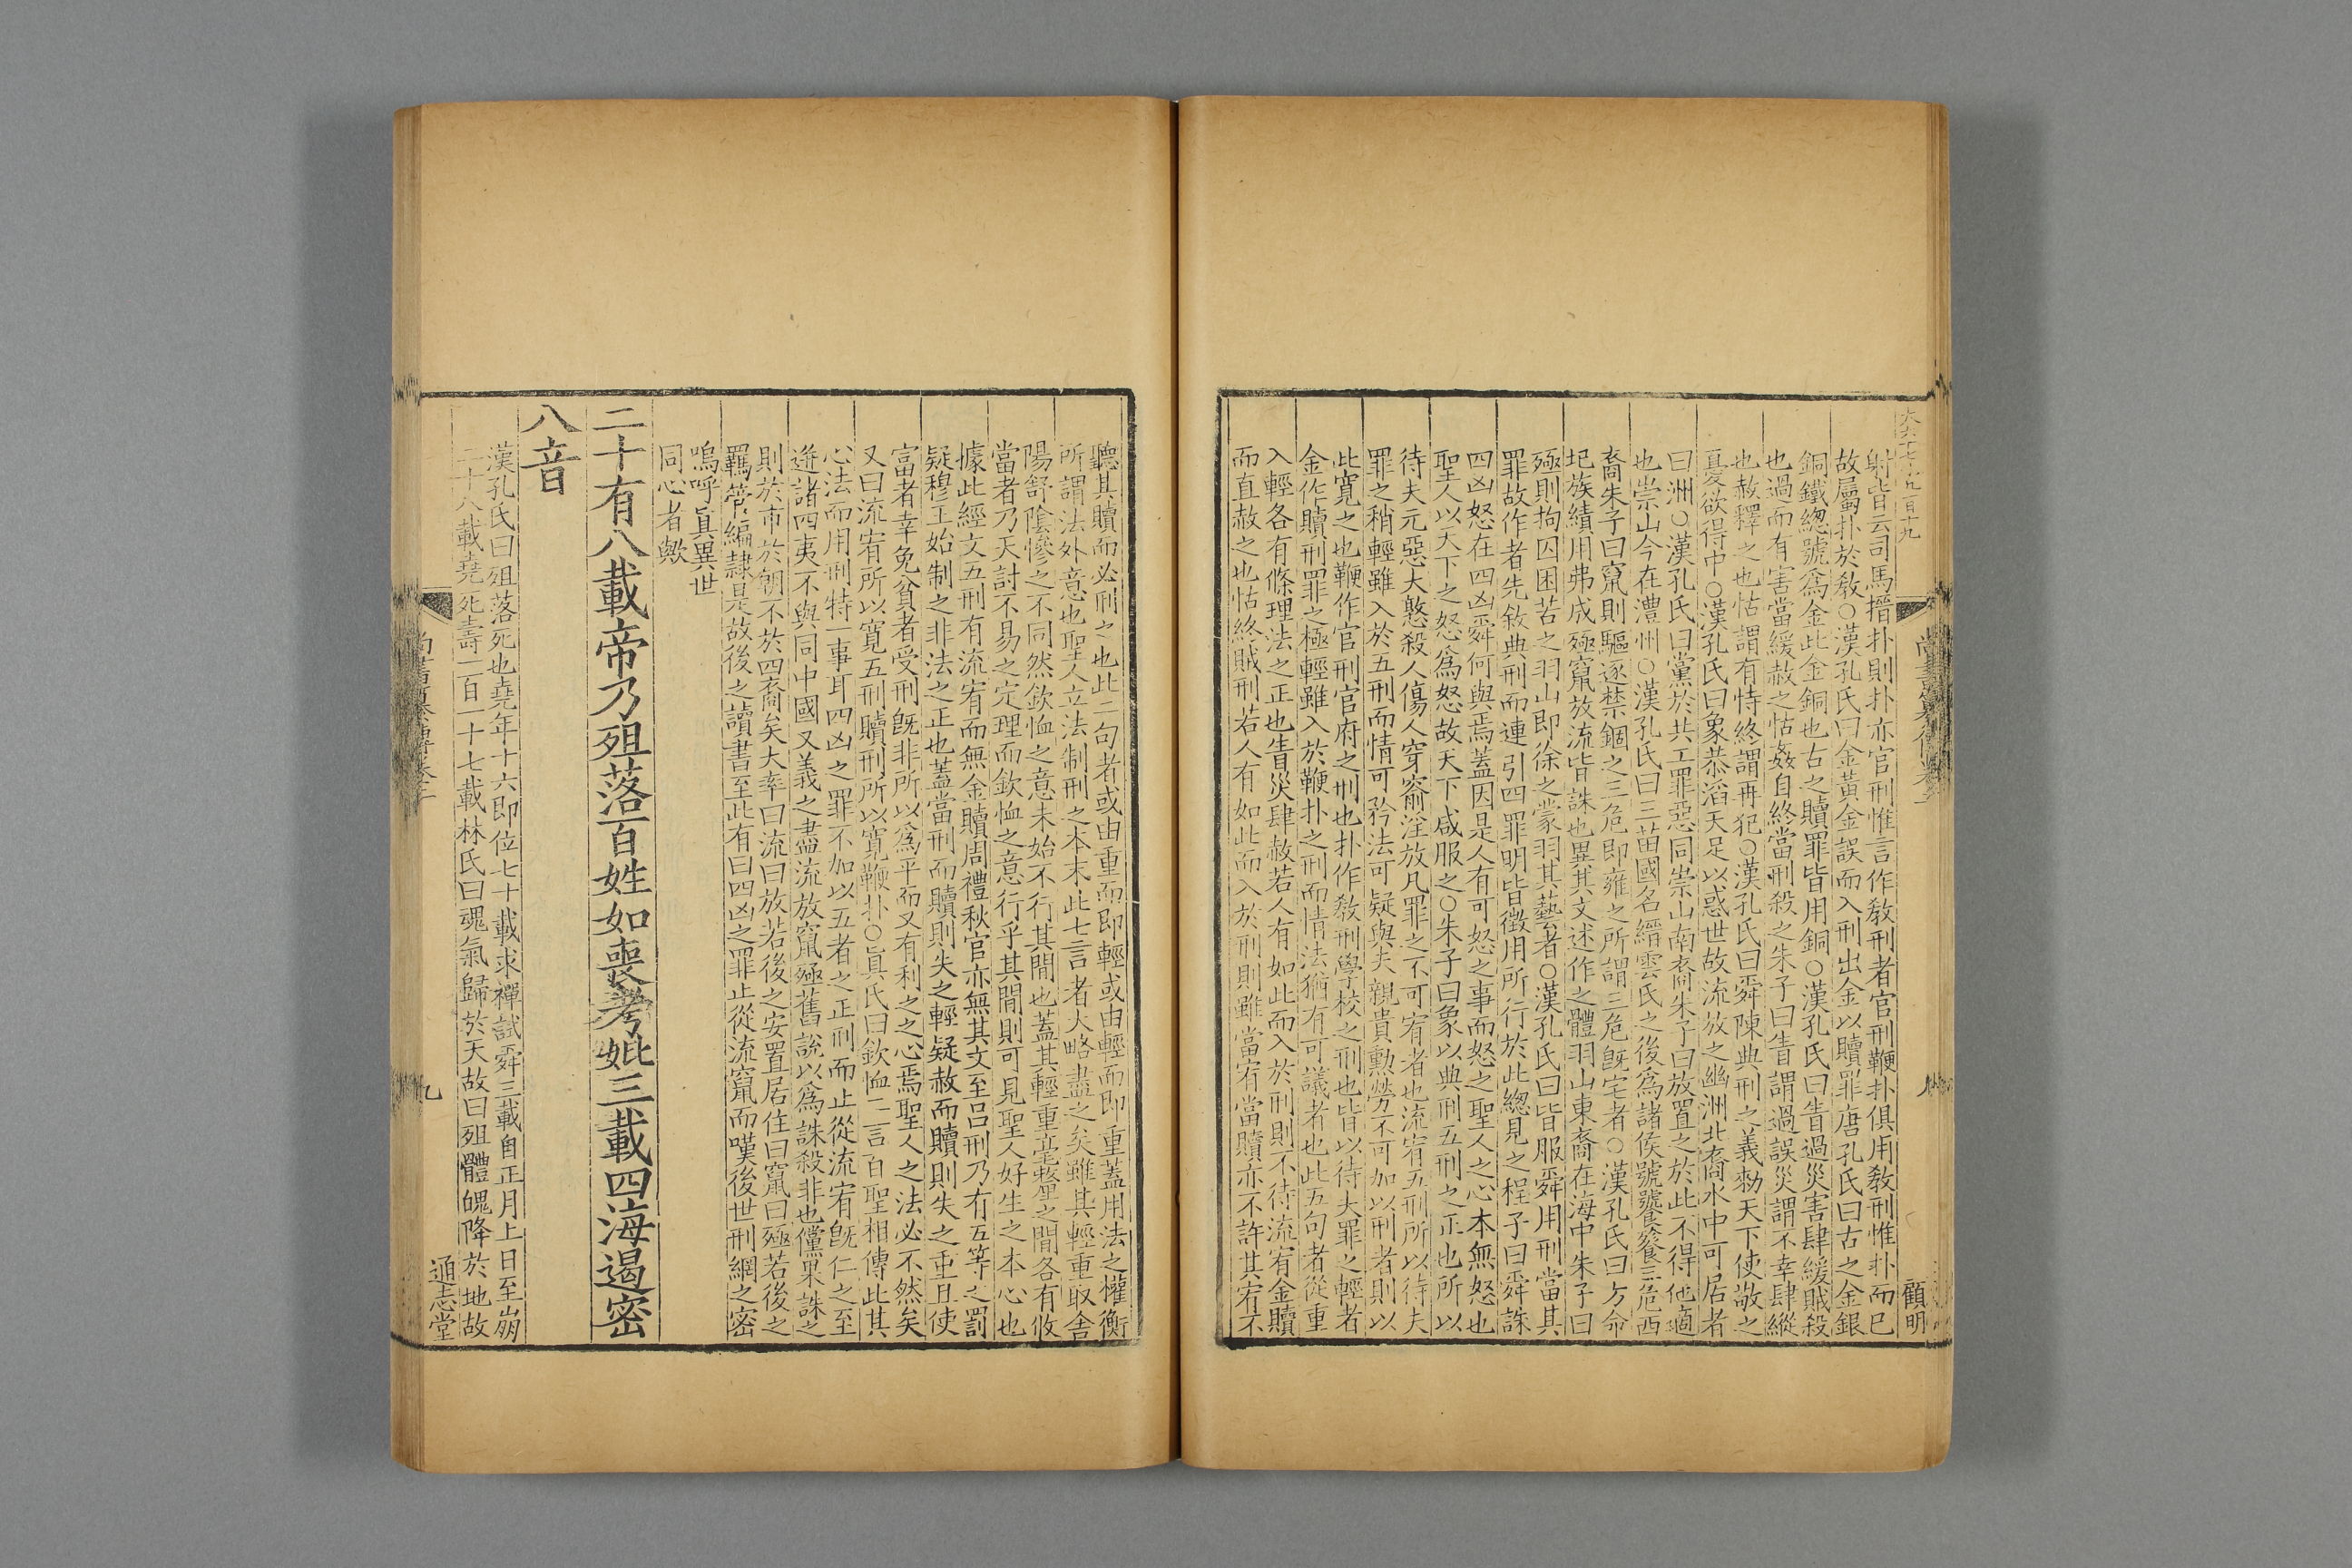 射皆云司馬搢扑則扑亦官刑惟言作敎刑者官刑鞭扑俱用敎刑惟扑而已
故屬扑於敎○漢孔氏曰金黃金誤而入刑出金以贖罪唐孔氏曰古之金銀
銅鐵總號爲金此金銅也古之贖罪皆用銅○漢孔氏曰眚過災害肆緩賊殺
也過而有害當緩赦之怙姦自終當刑殺之朱子曰眚謂過誤災謂不幸肆縱
也赦釋之也怙謂有恃終謂再犯○漢孔氏曰舜陳典刑之義勑天下使敬之
憂欲得中○漢孔氏曰象恭滔天足以惑世故流放之幽洲北裔水中可居者
曰洲○漢孔氏曰黨於共工罪惡同崇山南裔朱子曰放置之於此不得他適
也崇山今在澧州○漢孔氏曰三苗國名縉雲氏之後爲諸侯號饕餮三危西
裔朱子曰竄則驅逐禁錮之三危卽雍之所謂三危旣宅者○漢孔氏曰方命
圮族績用弗成殛竄放流皆誅也異其文述作之體羽山東裔在海中朱子曰
殛則拘囚困苦之羽山卽徐之蒙羽其藝者○漢孔氏曰皆服舜用刑當其
罪故作者先敘典刑而連引四罪明皆徵用所行於此總見之程子曰舜誅
四凶怒在四凶舜何與焉蓋因是人有可怒之事而怒之聖人之心本無怒也
聖人以天下之怒爲怒故天下咸服之○朱子曰象以典刑五刑之正也所以
待夫元惡大憝殺人傷人穿窬淫放凡罪之不可宥者也流宥五刑所以待夫
罪之稍輕雖入於五刑而情可矜法可疑與夫親貴勳勞不可加以刑者則以
此寛之也鞭作官刑官府之刑也扑作敎刑學校之刑也皆以待夫罪之輕者
金作贖刑罪之極輕雖入於鞭扑之刑而情法猶有可議者也此五句者從重
入輕各有條理法之正也眚災肆赦若人有如此而入於刑則不待流宥金贖
而直赦之也怙終賊刑若人有如此而入於刑則雖當宥當贖亦不許其宥不
顧明
聽其贖而必刑之也此二句者或由重而卽輕或由輕而卽重蓋用法之權衡
所謂法外意也聖人立法制刑之本末此七言者大略盡之矣雖其輕重取舍
陽舒陰慘之不同然欽恤之意未始不行其閒也蓋其輕重毫釐之閒各有攸
當者乃天討不易之定理而欽恤之意行乎其閒則可見聖人好生之本心也
據此經文五刑有流宥而無金贖周禮秋官亦無其文至呂刑乃有五等之罰
疑穆王始制之非法之正也蓋當刑而贖則失之輕疑赦而贖則失之重且使
富者幸免貧者受刑旣非所以爲平而又有利之之心焉聖人之法必不然矣
又曰流宥所以寬五刑贖刑所以寬鞭扑○眞氏曰欽恤二言百聖相傳此其
心法而用刑特一事耳四凶之罪不加以五者之正刑而止從流宥旣仁之至
迸諸四夷不與同中國又義之盡流放竄殛舊說以爲誅殺非也儻果誅之
則於市於朝不於四裔矣大率曰流曰放若後之安置居住曰竄曰殛若後之
羈管編隷是故後之讀書至此有曰四凶之罪止從流竄而嘆後世刑網之密
嗚呼眞異世
同心者歟
二十有八載帝乃殂落百姓如喪考妣三載四海遏密
八音
漢孔氏曰殂落死也堯年十六卽位七十載求禪試舜三載自正月上日至崩
二十八載堯死壽一百一十七載林氏曰魂氣歸於天故曰殂體魄降於地故
九
通志堂